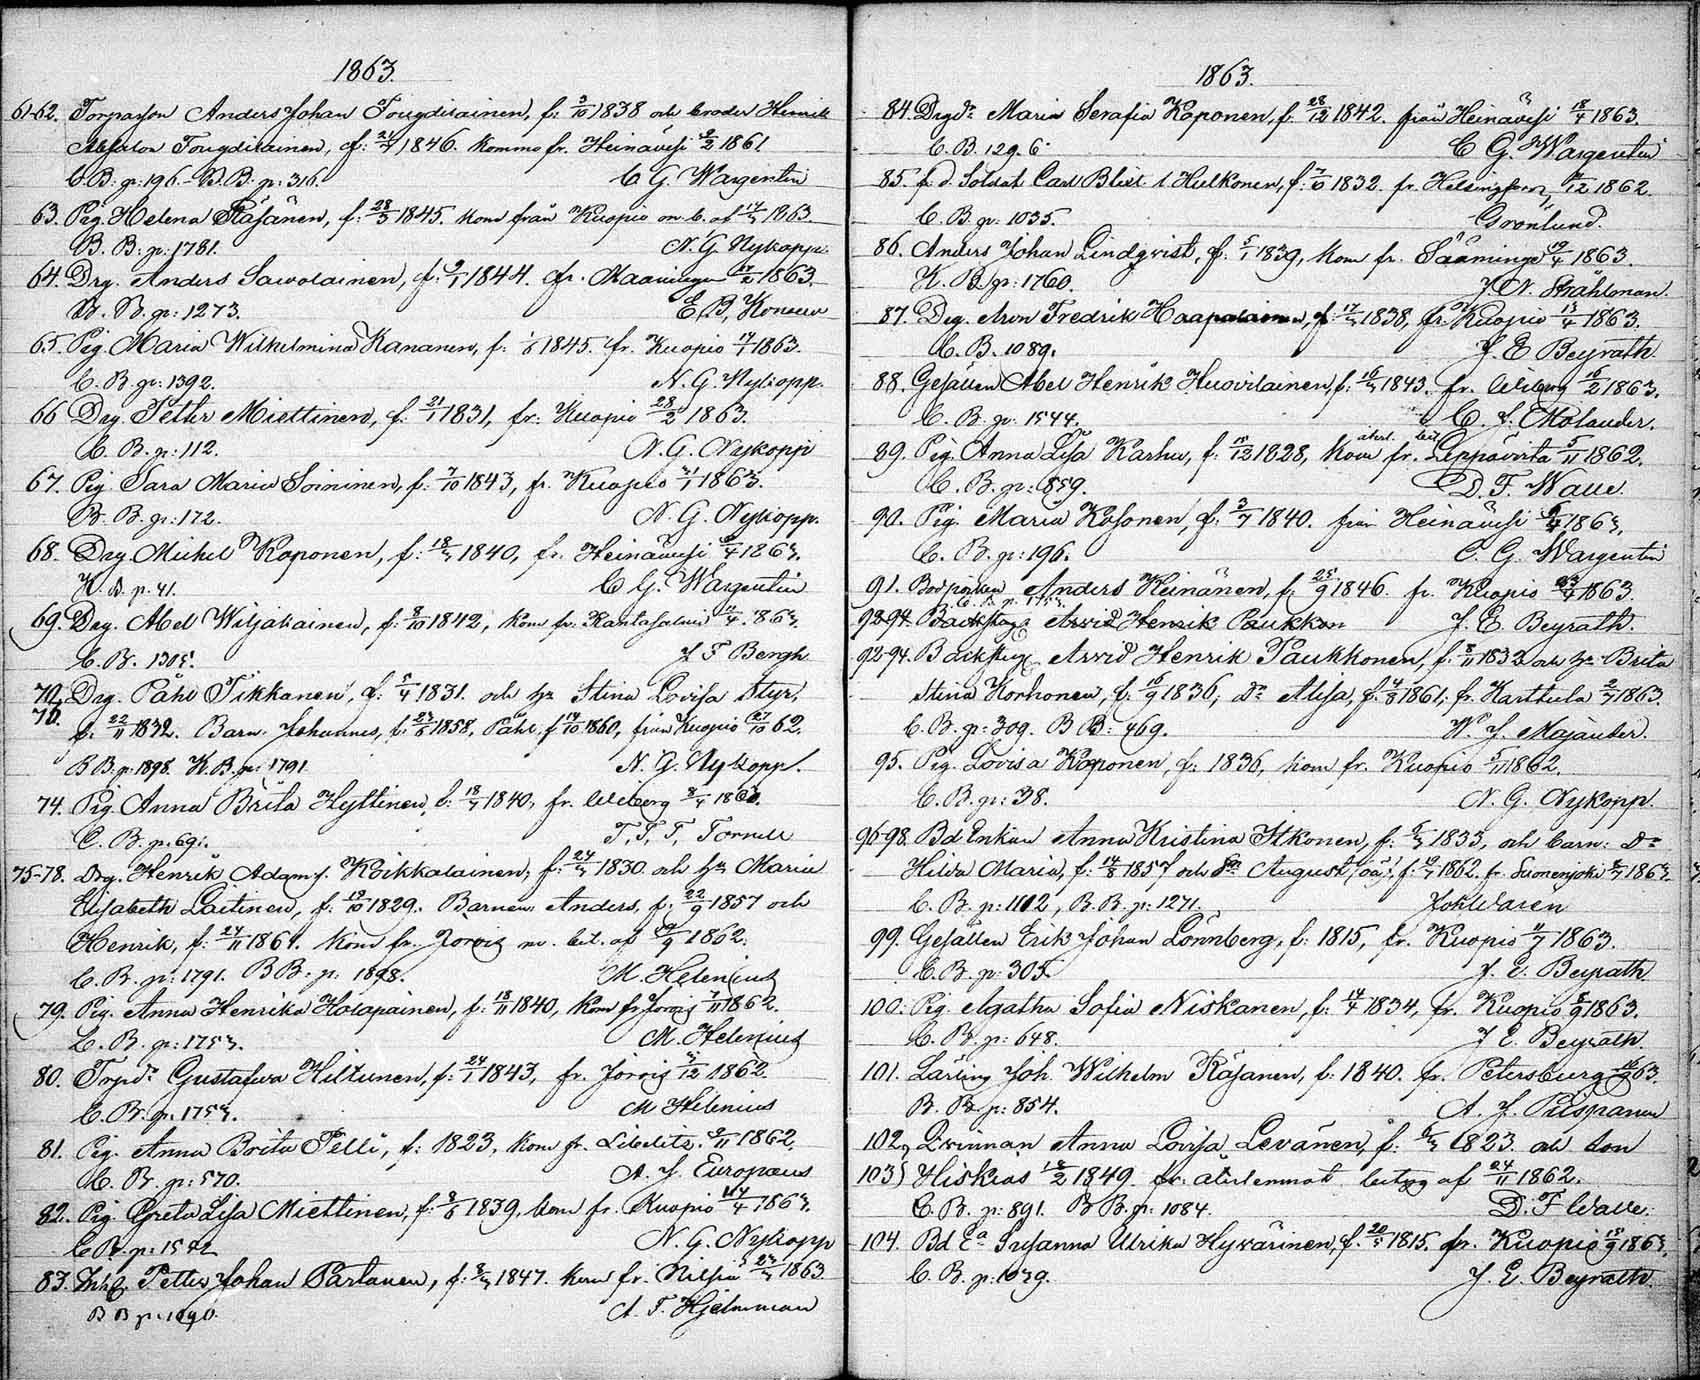 1863.
61-62. Torparson Anders Johan Tougdisainen, f: 3/10 1838 och broder Henrik
Absalon Tougdisainen, f: 21/7 1846. komma fr. Heinävesi 9/2 1861
C. B: p: 196 - B. B. p: 316. C. G. Wargentin
63. Pig. Helena Räsänen, f: 28/3 1845. kom från Kuopio m. b. af 14/3 1863.
B. B: p: 1781. N. G. Nykopp.
64. Drg. Anders Sawolainen, f: 9/1 1844. fr. Maaninga 17/2 1863.
B. B. p: 1273. E. B.
65. Pig. Maria Wilhelmina Kananen, f: 1845. fr. Kuopio 1863.
C. B. p: 1392. N. G. Nykopp.
66 Drg. Petter Miettinen, f. 21/1 1831, fr: Kuopio 28/2 1863.
C. B. p: 112. N. G. Nykopp
67. Pig. Sara Maria Soininen, f: 7/10 1843, fr. Kuopio 31/1 1863.
B. B. p: 172. N. G. Nykopp.
68. Drg Michel Koponen, f: 18/3 1840, fr. Heinävesi
K. B. p. 41. C G. Wargentin
69. Drg. Abel Wiljakainen, f: 8/10 1842, kom fr. Kantasalmi 1863.
C. B. J F Bergh
70. Drg. Påhl Tikkanen, f: 5/4 1831. och h:u Stina Lovisa Styr,
73. f. 22/11 1832. Barn. Johannes, f: 23/8 1858, Påhl, f 14/10 1860, från Kuopio 27/10 62.
B B. p: 1898. K. B. p: 1791 N. G. Nykopp.
74. Pig. Anna Brita Hyttinen, f: 18/7 1840, fr. Wiborg 1863.
C. B. p. 691. T. T. T. Tornell
75-78. Drg. Henrik Adamss. Koikkalainen, f: 24/3 1830 och h:u Maria
Elisabeth Laitinen, f: 19/10 1829. Barnen: Anders, f: 22/9 1857 och
Henrik, f: 24/11 1861. kom fr. Jorois m. bet. af 1862.
C. B. p: 1791. B B. p: 1898. M. Helenius
79. Pig. Anna Henrika Holopainen, f: 18/11 1840, kom fr Jorois 7/11 1862.
C. B. p: 1753. M. Helenius
80. Trpd:r Gustafwa Hiltunen, f: 24/1 1843, fr. Jorois 1862.
C. B. p. 1753. M Helenius
81. Pig. Anna Brita Pelli, f: 1823, kom fr. Libelitz 9/11 1862.
C. B. p: 570. A. J. Europæus
82. Pig. Greta Lisa Miettinen, f: 1839, kom fr. Kuopio 14/4 1863.
C B. p: 1542 N. G. Nykopp
83. Petter Johan Partanen, f: 1847. kom fr. Nilsiä 23/3 1863
B B p: 1090. A. F. Hjelmman
1863.
84. Drgd:r Maria Serafia Koponen, f. 28/12 1842. från Heinävesi 18/4 1863.
C. B. 129. 6 C G. Wargentin
85. f. d. Soldat Carl Blixt l Hulkonen, f: 7/10 1832. fr. Helsingfors 1862.
C. B. p: 1035. Grönlund.
86. Anders Johan Lindqvist, f: 5/1 1839, kom fr. Sääminge 19/4 1863.
K. B. p: 1760. J. N. Stråhlman.
87. Drg. Aron Fredrik Haapalainen, f: 17/3 1838, fr. Kuopio 13/4 1863.
C. B. 1089. J. E Beyrath
88. Gesällen Abel Henrik Huovilainen, f: 16/3 1843. fr. Wiborg 16/2 1863.
C. B. p: 1544. C. J. Molander.
89. Pig. Anna Lisa Karhu, f: 12 1828, kom fr. Leppävirta 5/11 1862.
C. B. p: 859. D. F. Walle.
90. Pig. Maria Kosonen, f: 3/7 1840. från Heinävesi 1863.
C. B. p: 196. C. G. Wargentin
91. Anders Keinänen, f: 25/9 1846. fr. Kuopio 1863.
C. B. p. 1753.
92-94. Backstug. Arvid Henrik Paukkon J. E. Beyrath.
92-94. Backstug. Arvid Henrik Paukkonen, f: 8/11 1832 och h:u Brita
Stina Korhonen, f: 16/9 1836, d:r Alisa, f: 4/8 1861, fr. Karttula 2/7 1863.
C. B. p: 309. B B: 469. W. J. Majander.
95. Pig. Lovisa Koponen, f: 1836, kom fr. Kuopio 5/11 1862.
C. B. p: 38. N. G. Nykopp.
96-98. Bd Enkan Anna Kristina Itkonen, f: 1833, och barn: D:r
Hilda Maria, f: 14/8 1857 och August (oä), f: 1862. fr. Suonenjoki 1863.
C. B. p: 1102, B. B. p: 1271. Joh Waren
99. Gesällen Erik Johan Lönnberg, f: 1815, fr. Kuopio 11/7 1863.
C. B. p: 305. J. E. Beyrath
100. Pig. Agatha Sofia Niskanen, f: 14/4 1834, fr. Kuopio 8/9 1863.
C. B. p: 648. J E. Beyrath
101. Lärling Joh. Wilhelm Räsänen, f: 1840. fr. Petersburg 63.
B. B p: 854. A. J. Piispanen
102, Qvinnan Anna Lovisa Levänen, f: 1823. och son
103) Hiskias 18/2 1849. fr. betyg af 24/11 1862.
C. B. p: 891. B B. p: 1084. D. F Walle.
104. Bd E:a Susanna Ulrika Hyvärinen, f. 20/5 1815. fr. Kuopio 1863.
C. B. p: 1039. J. E. Beyrath.